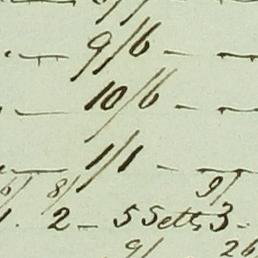 — 9/6 — —
— 10/6 — —
— 1/1 — —
6/ 8/ 9/
1. 2 — 5 Setts 3.
9/ 26